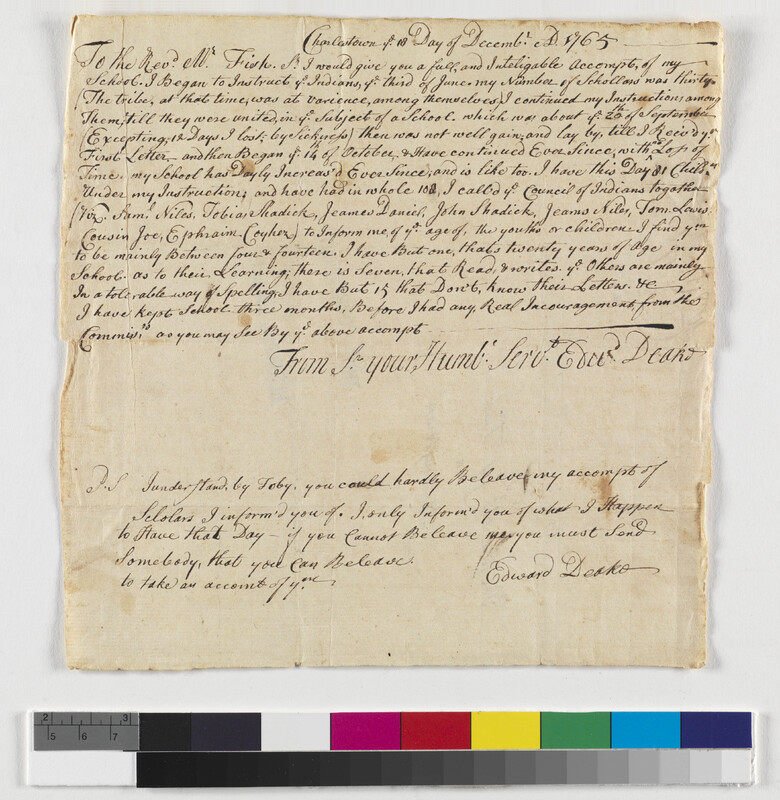 Charlestown yͤ 18 Day of Decembʳ AD 1765
To the Revᵈ. Mʳ Fish. Sʳ. I would give you a full, and Inteligable Accompt, of my
School. I Began to Instruct yͤ Indians, yͤ third of June. my Number of Schollars was thirty
The tribe, at that time, was at varience, among themselves, I continued my Instructions among
Them; till they were united, in yͤ Subject of a School. which was about yͤ 20 of September
(Excepting, 12 Days I lost, by Sickness) then was not well gain, and lay by, till I Reiv'd yʳ
First Letter, and then Began yͤ 14 of October, & Have continued Ever Since, with no Loss of
Time. my School has Dayly Increas'd Ever Since, and is like too. I have this Day 81 Childⁿ
Under my Instruction; and have had in whole 108, I call'd yͤ Council of Indians together
(viz. Samˡ Niles, Tobias Shadick, Jeames Daniel, John Shadick, Jeams Niles, Tom. Lewis
Cousin Joe, Ephraim Coyhez) to Inform me of yͤ age of, the youths or children. I find yᵐ
to be mainly Between four & fourteen. I have But one, that's twenty years of Age in my
School. as to their Learning; there is Seven, that Read, & writes. yͤ Others are mainly
In a tolerable way of Spelling, I have But 15 that Don't, know their Letters. &c
I have kept School three months, Before I had any, Real Incouragement, from the
Commisʳˢ as you may See By yͤ above accompt
From Sʳ your, Humbˡ Servᵗ Edwᵈ Deake
P.S I understand, by Toby. you could hardly Beleave my accompt of
Scholars I inform'd you of. I, only Inform'd you of what I Happen
to Have that Day – if you Cannot Beleave me you must Send
Somebody, that you can Beleave
to take an accomt of yᵐ
Edward Deake
2 3
5 6 7